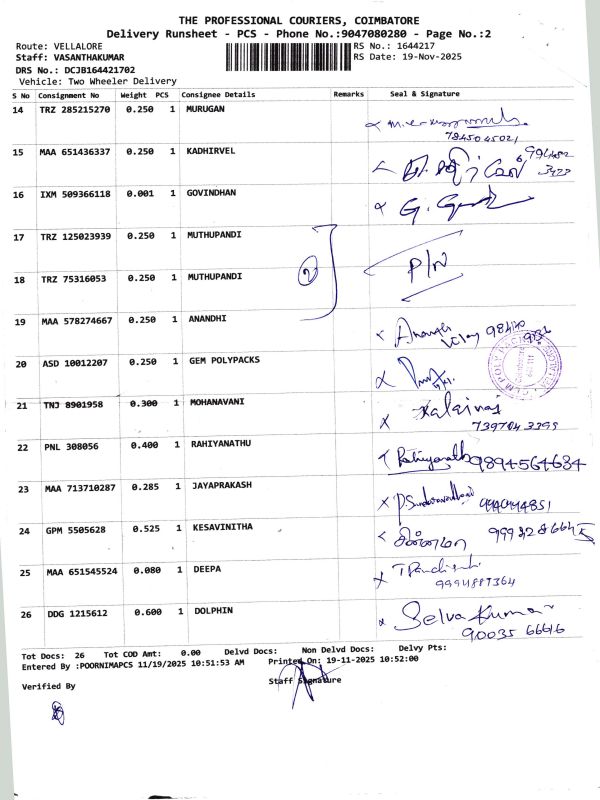 THE PROFESSIONAL COURIERS, COIMBATORE
Delivery Runsheet - PCS - Phone No.:9047080280 - Page No.:2
Route: VELLALORE RS No.: 1644217
Staff: VASANTHAKUMAR RS Date: 19-Nov-2025
DRS No.: DCJB164421702
Vehicle: Two Wheeler Delivery
S No Consignment No Weight PCS Consignee Details Remarks Seal & Signature
14 TRZ 285215270 0.250 1 MURUGAN
7845045021
15 MAA 651436337 0.250 1 KADHIRVEL
16 IXM 509366118 0.001 1 GOVINDHAN G.
17 TRZ 125023939 0.250 1 MUTHUPANDI
2 P/N
18 TRZ 75316053 0.250 1 MUTHUPANDI
19 MAA 578274667 0.250 1 ANANDHI
20 ASD 10012207 0.250 1 GEM POLYPACKS
21 TNJ 8901958 0.300 1 MOHANAVANI
7397043395
22 PNL 308056 0.400 1 RAHIYANATHU Rahiyanath 9894564634
23 MAA 713710287 0.285 1 JAYAPRAKASH
24 GPM 5505628 0.525 1 KESAVINITHA
25 MAA 651545524 0.080 1 DEEPA
26 DDG 1215612 0.600 1 DOLPHIN Selva Kumar
90035 66616
Tot Docs: 26 Tot COD Amt: 0.00 Delvd Docs: Non Delvd Docs: Delvy Pts:
Entered By :POORNIMAPCS 11/19/2025 10:51:53 AM Printed On: 19-11-2025 10:52:00
Verified By Staff Signature